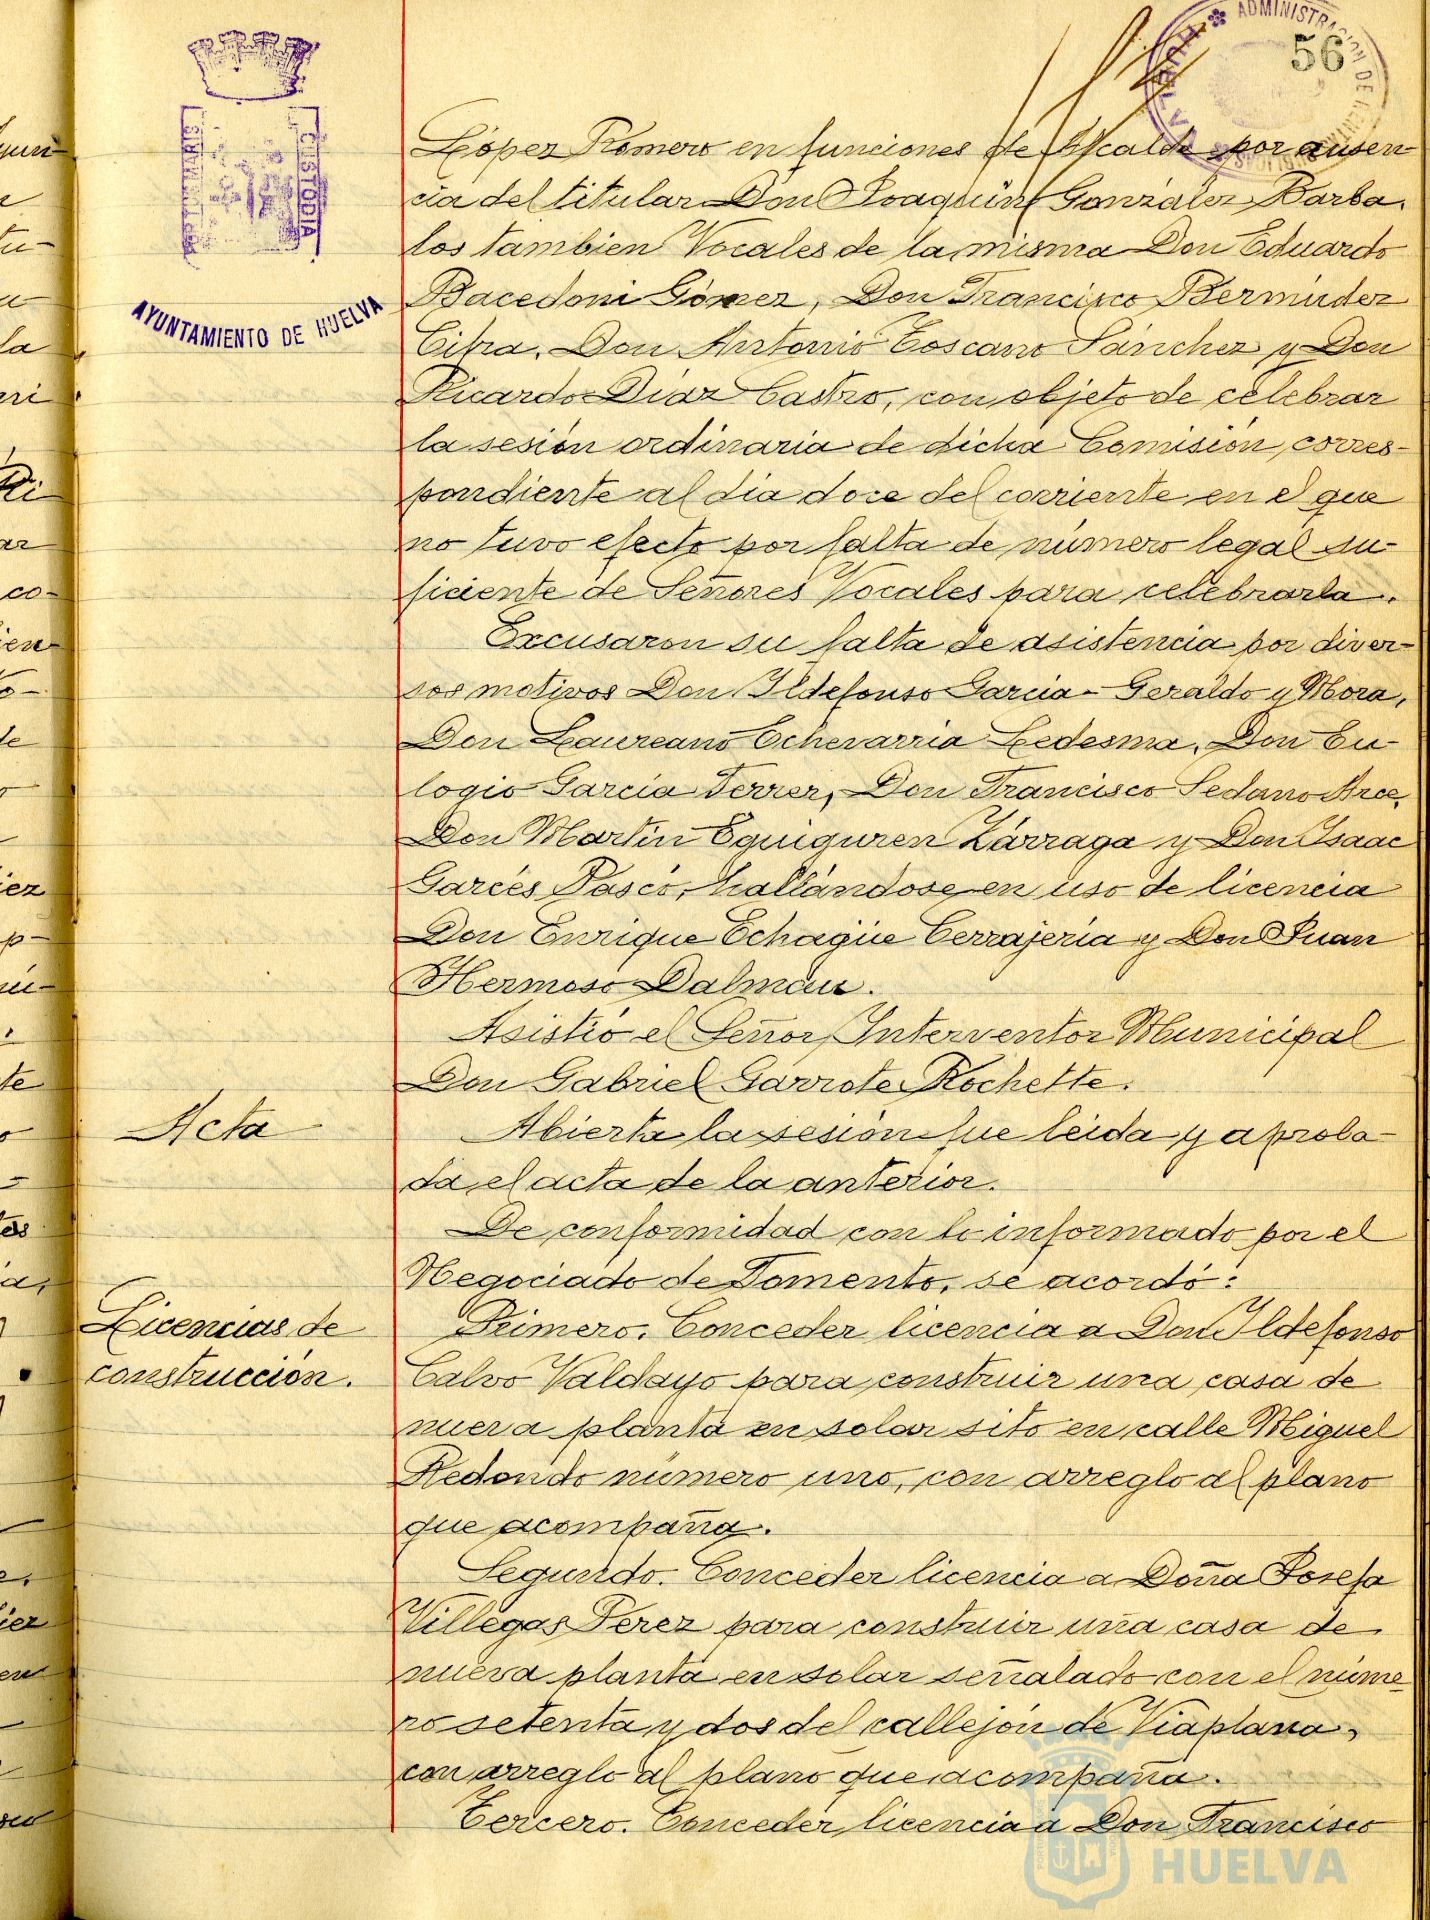 ADMINISTRACION DE
HUELVA
56
PORTUS MARIS
CUSTODIA
AYUNTAMIENTO DE HUELVA
López Romero en funciones de Alcalde por ausen-
cia del titular Don Joaquín González Barba,
los tambien Vocales de la misma Don Eduardo
Bacedoni Gómez, Don Francisco Bermúdez
Cifra, Don Antonio Toscano Sánchez y Don
Ricardo Díaz Castro, con objeto de celebrar
la sesión ordinaria de dicha Comisión, corres-
pondiente al día doce del corriente en el que
no tuvo efecto por falta de número legal su-
ficiente de Señores Vocales para celebrarla.
Excusaron su falta de asistencia por diver-
sos motivos Don Ildefonso Garcia-Geraldo y Mora,
Don Laureano Echevarria Ledesma, Don Eu-
logio García Ferrer, Don Francisco Sedano Arce,
Don Martín Eguiguren Zárraga y Don Isaac
Garcés Pascó, hallándose en uso de licencia
Don Enrique Echagüe Cerrajería y Don Juan
Hermoso Dalmau.
Asistió el Señor Interventor Municipal
Don Gabriel Garrote Rochette.
Acta
Abierta la sesión fue leída y aproba-
da el acta de la anterior.
De conformidad con lo informado por el
Negociado de Fomento, se acordó:
Licencias de
construcción.
Primero. Conceder licencia a Don Ildefonso
Calvo Valdayo para construir una casa de
nueva planta en solar sito en calle Miguel
Redondo número uno, con arreglo al plano
que acompaña.
Segundo. Conceder licencia a Doña Josefa
Villegas Perez para construir una casa de
nueva planta en solar señalado con el núme-
ro setenta y dos del callejón de Viaplana,
con arreglo al plano que acompaña.
Tercero. Conceder licencia a Don Francisco
HUELVA